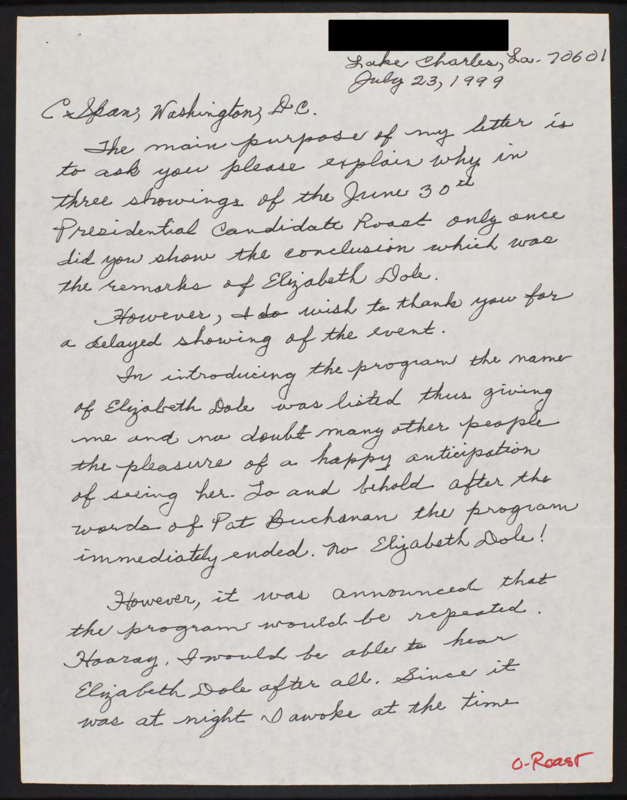 Lake Charles, La. 70601
July 23, 1999
C-Span, Washington, D.C.
The main purpose of my letter is
to ask you please explain why in
three showings of the June 30th
Presidential Candidate Roast only once
did you show the conclusion which was
the remarks of Elizabeth Dole.
However, I do wish to thank you for
a delayed showing of the event.
In introducing the program the name
of Elizabeth Dole was listed thus giving
me and no doubt many other people
the pleasure of a happy anticipation
of seeing her. Lo and behold after the
words of Pat Buchanan the program
immediately ended. No Elizabeth Dole!
However, it was announced that
the program would be repeated.
Hooray. I would be able to hear
Elizabeth Dole after all. Since it
was at night I awoke at the time
O-Roast